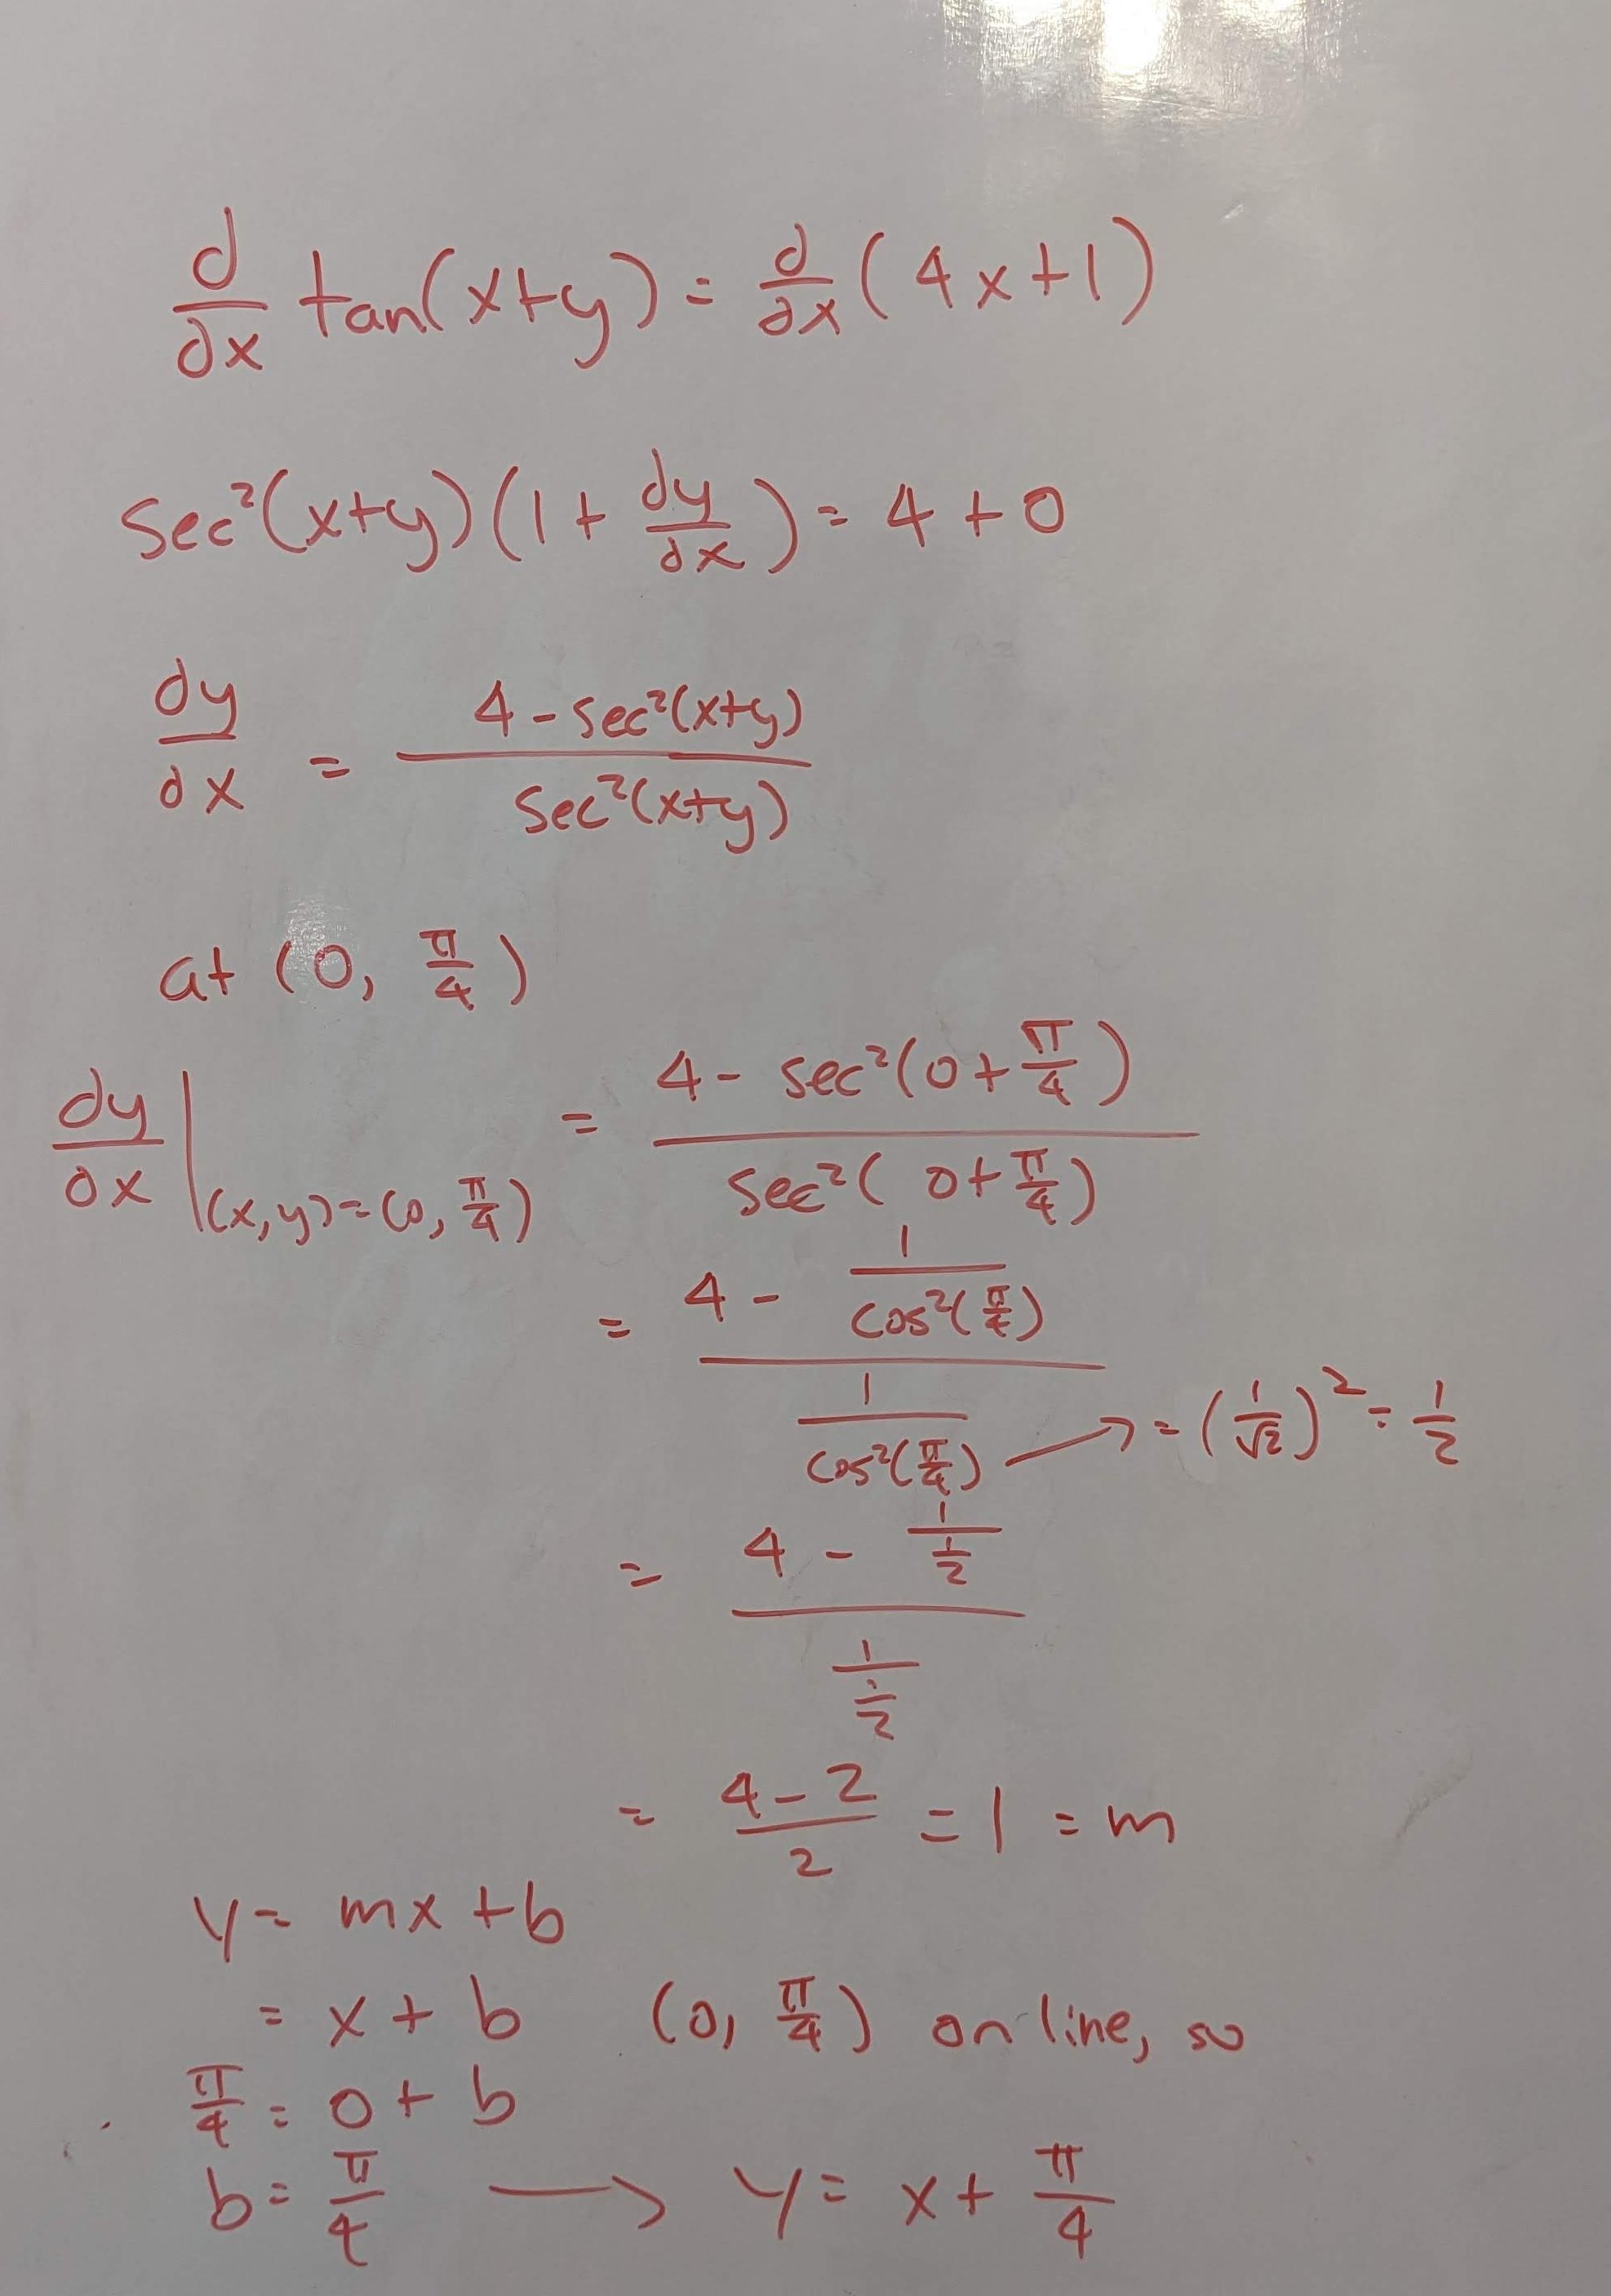 d/dx tan(x+y) = d/dx (4x+1)
sec²(x+y)(1 + dy/dx) = 4 + 0
dy/dx = (4 - sec²(x+y)) / (sec²(x+y))
at (0, π/4)
dy/dx |(x,y)=(0, π/4) = (4 - sec²(0+π/4)) / (sec²(0+π/4))
= (4 - 1/(cos²(π/4))) / (1/(cos²(π/4))) → = (1/√2)² = 1/2
= (4 - 1/(1/2)) / (1/(1/2))
= (4-2)/2 = 1 = m
y = mx + b
= x + b (0, π/4) on line, so
π/4 = 0 + b
b = π/4 → y = x + π/4